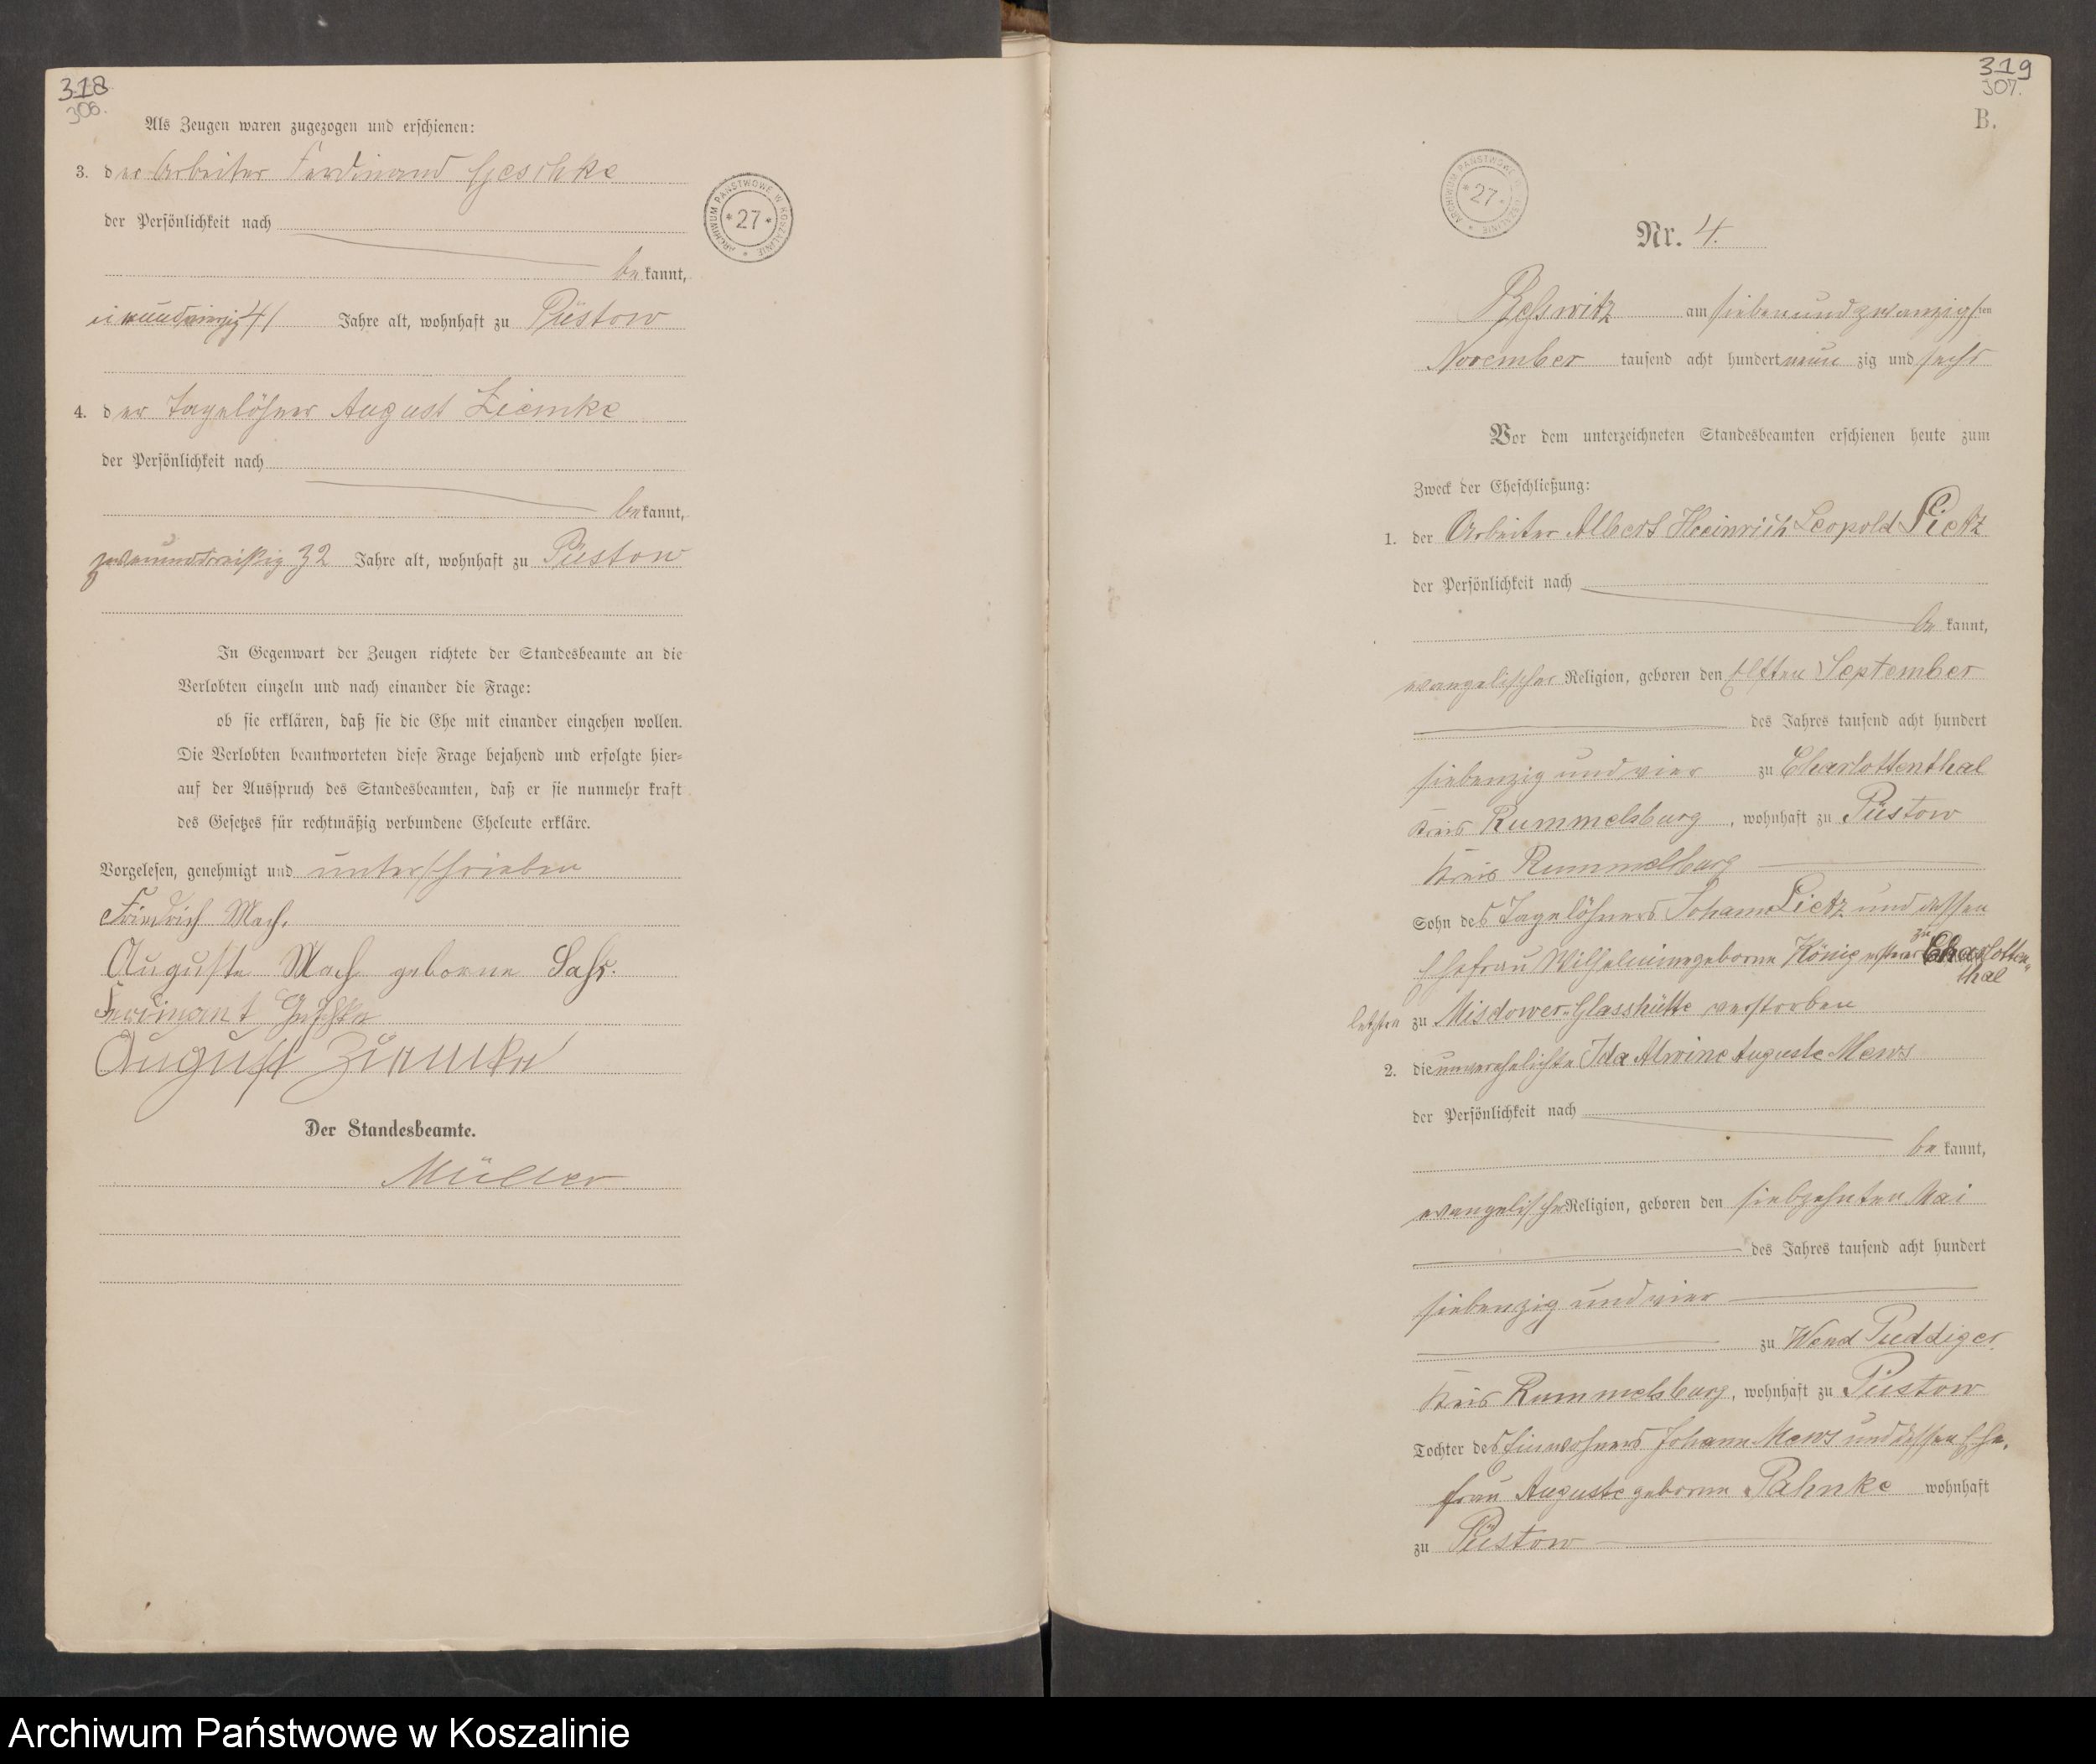 318
306.
Als Zeugen waren zugezogen und erschienen:
3. der Arbeiter Ferdinand Geschke
der Persönlichkeit nach
bekannt,
einundvierzig 41 Jahre alt, wohnhaft zu Püstow
4. der Tagelöhner August Ziemke
der Persönlichkeit nach
bekannt,
zweiunddreißig 32 Jahre alt, wohnhaft zu Püstow
In Gegenwart der Zeugen richtete der Standesbeamte an die
Verlobten einzeln und nach einander die Frage:
ob sie erklären, daß sie die Ehe mit einander eingehen wollen.
Die Verlobten beantworteten diese Frage bejahend und erfolgte hier-
auf der Ausspruch des Standesbeamten, daß er sie nunmehr kraft
des Gesetzes für rechtmäßig verbundene Eheleute erkläre.
Vorgelesen, genehmigt und unterschrieben
Friedrich Mach.
Auguste Mach geborne
Ferdinant Geschke
August Ziemke
Der Standesbeamte.
Müller
ARCHIWUM PAŃSTWOWE W KOSZALINIE
* 27 *
319
307.
B.
ARCHIWUM PAŃSTWOWE W KOSZALINIE
* 27 *
Nr. 4.
am siebenundzwanzigsten
November tausend acht hundert neun zig und sechs
Vor dem unterzeichneten Standesbeamten erschienen heute zum
Zweck der Eheschließung:
1. der Arbeiter Albert Heinrich Leopold Lietz
der Persönlichkeit nach
be kannt,
evangelischer Religion, geboren den elften September
des Jahres tausend acht hundert
siebenzig und vier zu Charlottenthal
Kreis Rummelsburg, wohnhaft zu Püstow
Kreis Rummelsburg
Sohn des Tagelöhners Johann Lietz und dessen
Ehefrau Wilhelmine geborne König ersterer zu Charlotten-
thal
letztere zu Misdower-Glasshütte verstorben
2. die unverehelichte Ida Alwine Auguste Mews
der Persönlichkeit nach
be kannt,
evangelischer Religion, geboren den siebzehnten Mai
des Jahres tausend acht hundert
siebenzig und vier
zu Wend Puddiger
Kreis Rummelsburg, wohnhaft zu Püstow
Tochter des Einwohners Johann Mews und dessen Ehe-
frau Auguste geborne Pahnke wohnhaft
zu Püstow
Archiwum Państwowe w Koszalinie